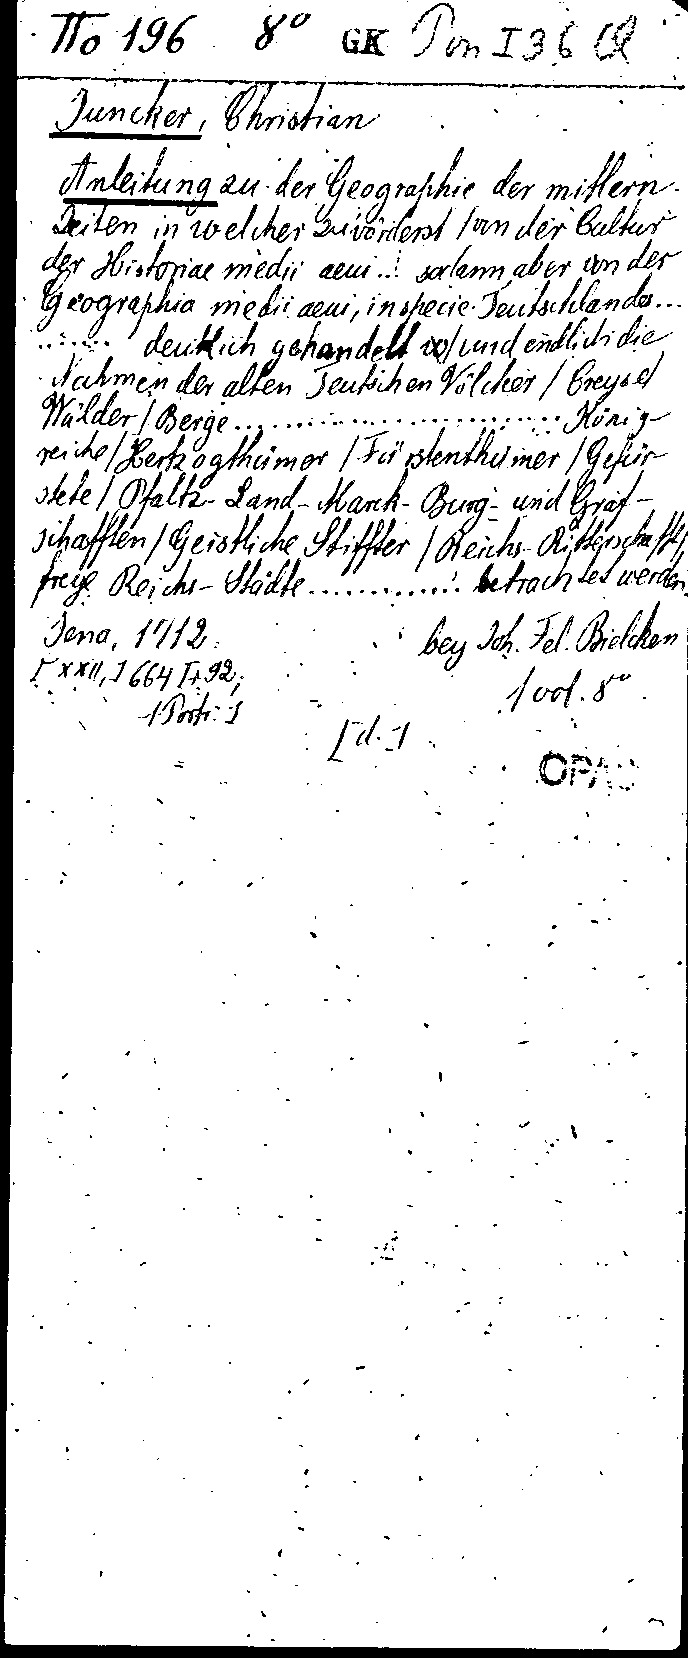 No 196 8° GK Pon I 36
Juncker, Christian
Anleitung zu der Geographie der mittlern
Zeiten in welcher zuvörderst / von der Cultur
der Historiae medii aeui... sodann aber von der
Geographia medii aeui, in specie Teutschlandes...
...... deutlich gehandelt / und endlich die
Nahmen der alten Teutschen Völcker / Creyse /
Wälder / Berge .............................. König-
reiche / Hertzogthümer / Fürstenthümer / Gefür-
stete / Pfaltz- Land- Marck- Burg- und Graf-
schafften / Geistliche Stiffter / Reichs- Ritterschafft /
freye Reichs- Städte .............. betrachtet werden
Jena, 1712. bey Joh. Fel. Bielcken
[XXII,] 664 [+92;
1 Portr.] 1 vol. 8°
[d.]
OPAC